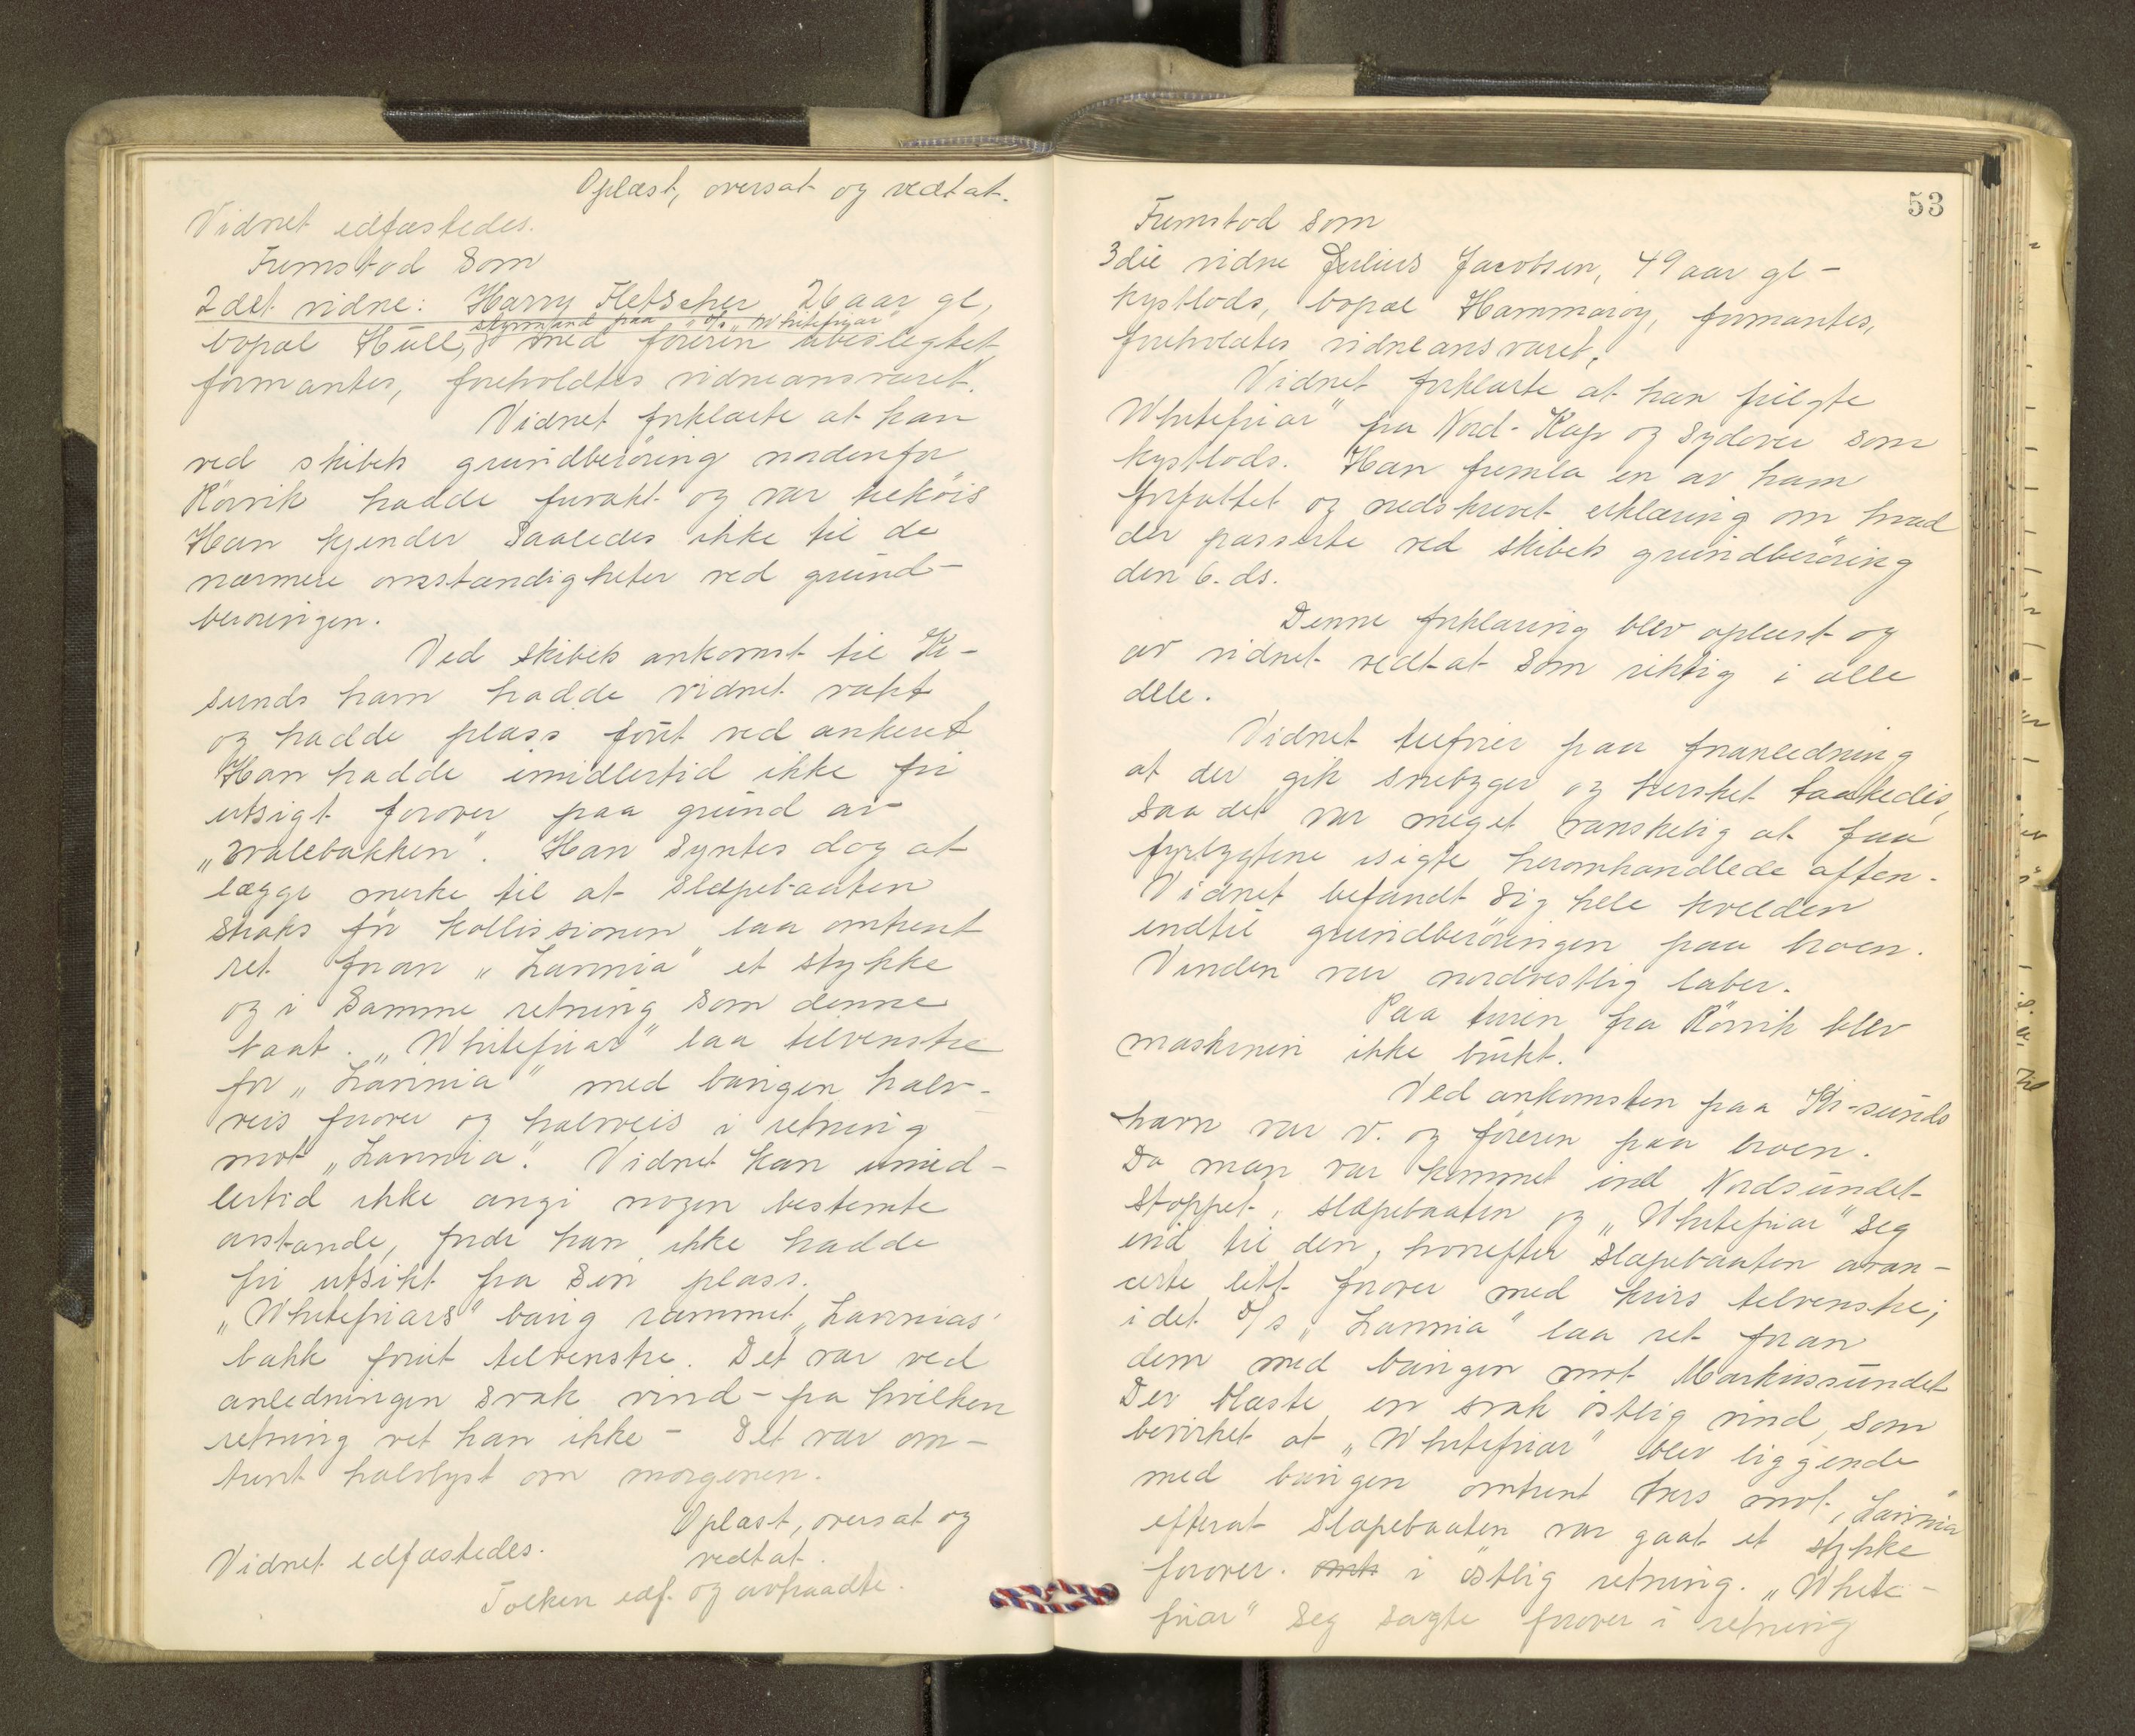 Oplæst, oversat og vedtat.
Vidnet edfæstedes.
Fremstod som
2det vidne: Harry Fletscher 26 aar gl,
styrmand paa "D/s "Whitefriar"
bopæl Hull, med föreren ubeslegtet
formantes, foreholdtes vidneansvaret.
Vidnet forklarte at han
ved skibets grundberöring nordenfor
Rörvik hadde frivakt og var tilköis
Han kjender saaledes ikke til de
nærmere omstændigheter ved grund-
beröringen.
Ved skibets ankomst til Kr-
sunds havn hadde vidnet vakt
og hadde plass förut ved ankeret
Han hadde imidlertid ikke fri
utsigt forover paa grund av
"hvalebakken". Han syntes dog at
lægge merke til at slæpebaaten
straks för kollissionen laa omtrent
ret foran "Lavinia" et stykke
og i samme retning som denne
baat. "Whitefriar" laa tilvenstre
for "Lavinia" med baugen halv-
veis forover og halvveis i retning
mot "Lavinia". Vidnet kan imid-
lertid ikke angi nogen bestemte
avstande, fordi han ikke hadde
fri utsikt fra sin plass.
"Whitefriars" baug rammet "Lavinias"
bakk forut tilvenstre. Det var ved
anledningen svak vind - fra hvilken
retning vet han ikke - Det var om-
trent halvlyst om morgenen.
Oplæst, oversat og
Vidnet edfæstedes. vedtat.
Tolken edf. og avtraadte.
53
Fremstod som
3die vidne Julius Jacobsen, 49 aar gl -
kystlods, bopæl Hammaröy, formantes,
foreholdtes vidneansvaret.
Vidnet forklarte at han fulgte
Whitefriar" fra Nord-Kap og sydover som
kystlods. Han fremla en av ham
forfattet og nedskrevet erklæring om hvad
der passerte ved skibets grundberöring
den 6. ds.
Denne forklaring blev oplæst og
av vidnet vedtat som riktig i alle
dele.
Vidnet tilföier paa foranledning
at der gik snebyger og hersket taakedis,
saa det var meget vanskelig at faa
fyrlygtene isigte heromhandlede aften.
Vidnet befandt sig hele kvelden
indtil grundberöringen paa broen.
Vinden var nordvestlig laber.
Paa turen fra Rörvik blev
maskinen ikke brukt.
Ved ankomsten paa Kr-sunds
havn var v. og föreren paa broen.
Da man var kommet ind Nordsundet
stoppet, slæpebaaten og "Whitefriar" seg
ind til den, hvorefter slæpebaaten avan-
certe litt forover med kurs tilvenstre,
idet D/s "Lavinia" laa ret foran
dem med baugen mot Markussundet
Der blæste en svak östlig vind, som
bevirket at "Whitefriar" blev liggende
med baugen omtrent tvers mot "Lavinia"
efterat slæpebaaten var gaat et stykke
forover. i östlig retning. "White-
friar" seg sagte forover i retning